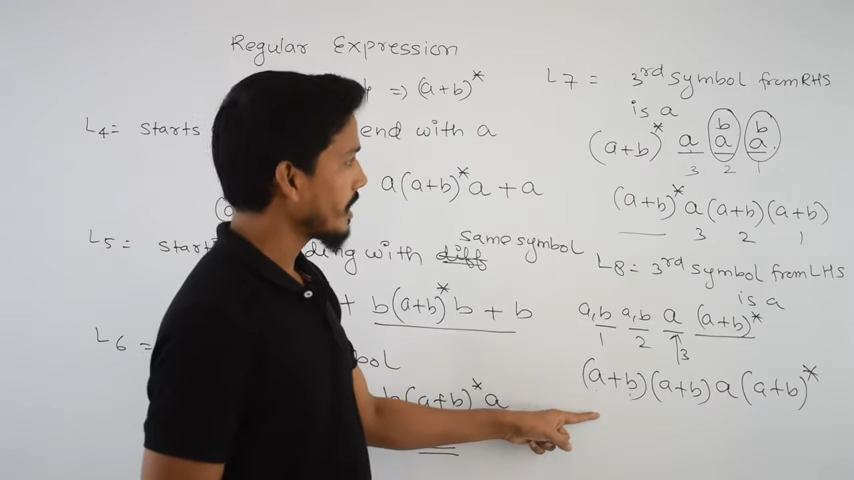 Regular Expression
=> (a+b)*
L4= starts end with a
a(a+b)*a + a
(a
L5= start ding with diff same symbol
+ b(a+b)*b + b
L6 = bol
b(a+b)*a
L7 = 3rd symbol from RHS
is a
b b
(a+b)* a a a.
3 2 1
(a+b)* a (a+b)(a+b)
3 2 1
L8= 3rd symbol from LHS
is a
a,b a,b a (a+b)*
1 2 3
(a+b)(a+b) a (a+b)*